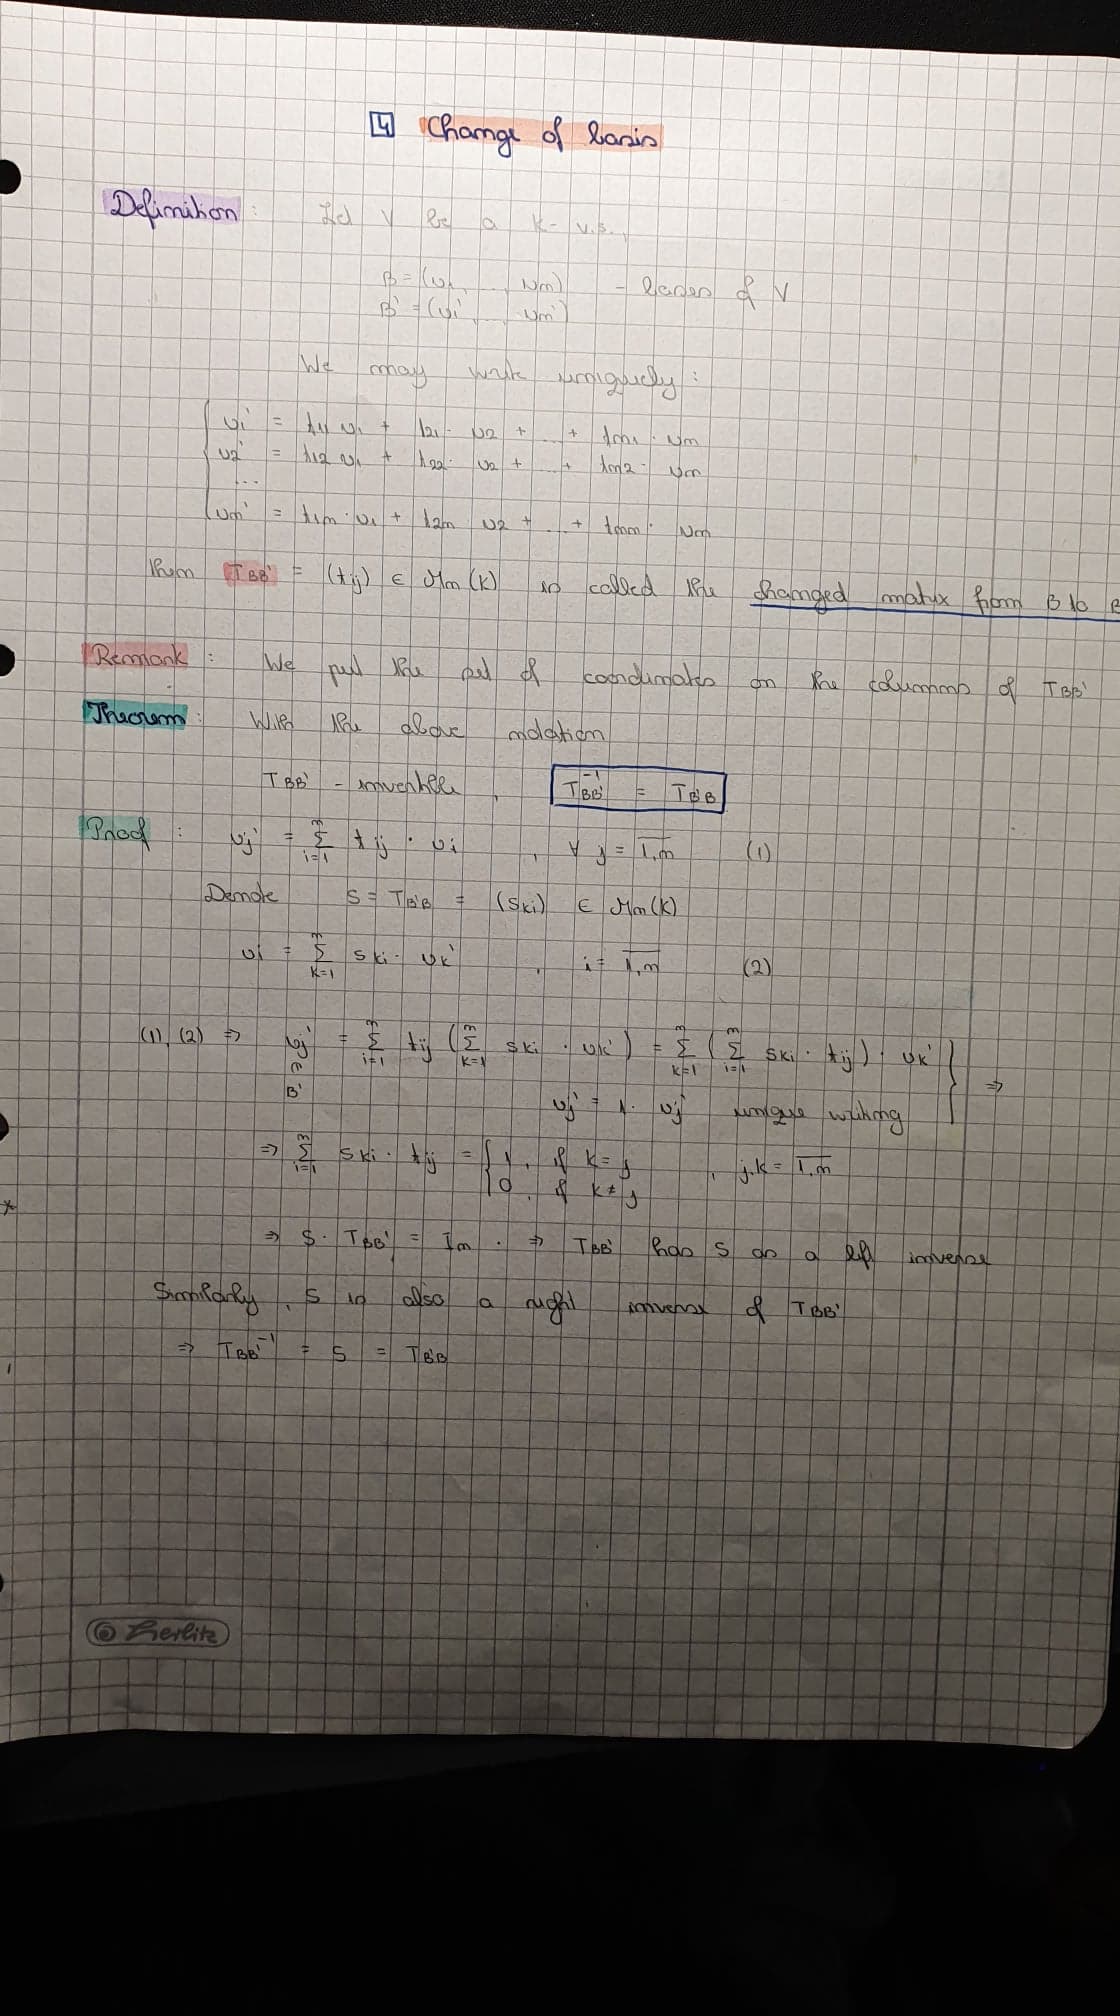 4 Change of basis
Definition : Let V be a K- v.s.,
B = (v1, ..., vn) - bases of V
B' = (v1', ..., vn')
We may write uniquely :
v1' = t11 v1 + t21 · v2 + ... + tn1 · vn
v2' = t12 v1 + t22 · v2 + ... + tn2 · vn
...
vn' = t1n · v1 + t2n v2 + ... + tnn · vn
Then TBB' = (tij) ∈ Mn(K) is called the changed matrix from B to B
Remark : We put the set of coordinates on the columns of TBB'
Theorem : With the above notation
TBB' - invertible , TBB'^-1 = TB'B
Proof : vj' = Σ(i=1, n) tij · vi , ∀ j = 1,n (1)
Denote S = TB'B = (ski) ∈ Mn(K)
vi = Σ(k=1, n) ski · vk' , i = 1,n (2)
(1), (2) => vj' = Σ(i=1, n) tij (Σ(k=1, n) ski · vk') = Σ(k=1, n) (Σ(i=1, n) ski · tij) · vk' } =>
∩
B' vj' = 1 · vj' unique writing
=> Σ(i=1, n) ski · tij = { 1, if k = j , j,k = 1,n
0, if k ≠ j
=> S · TBB' = In . => TBB' has S as a left inverse
Similarly, S is also a right inverse of TBB'
=> TBB'^-1 = S = TB'B
Herlitz